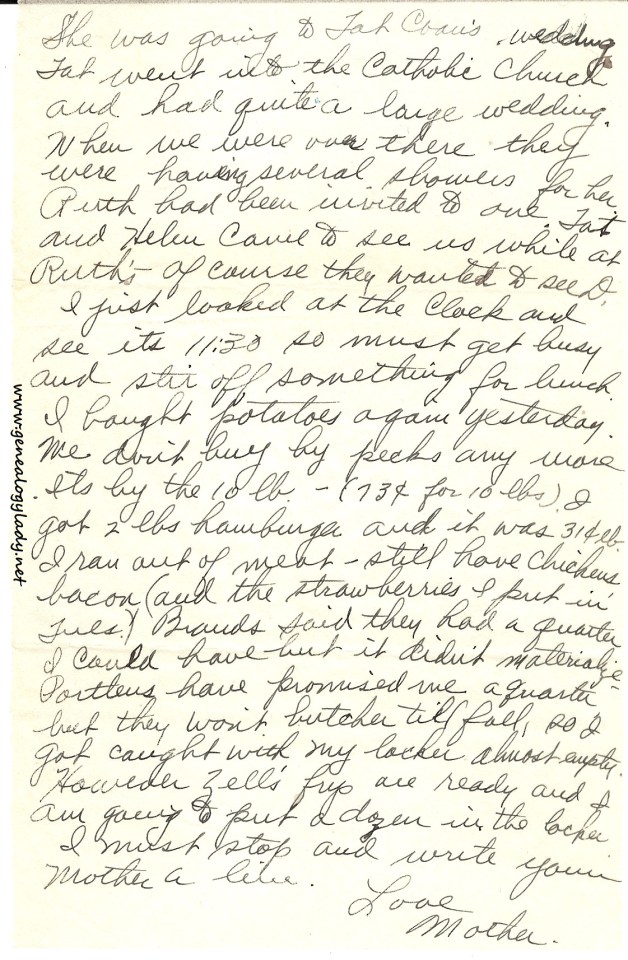 She was going to Tat Coan's wedding
Tat went into the Catholic Church
and had quite a large wedding.
When we were over there they
were having several showers for her
Ruth had been invited to one. Tat
and Helen came to see us while at
Ruth's - of course they wanted to see D.
I just looked at the clock and
see its 11:30 so must get busy
and stir off something for lunch.
I bought potatoes again yesterday.
We don't buy by pecks any more
Its by the 10 lb. - (73¢ for 10 lbs) I
got 2 lbs hamburger and it was 31¢ lb.
I ran out of meat - still have chickens
bacon (and the strawberries I put in
Tues.) Brands said they had a quarter
I could have but it didn't materialize -
Porteus have promised me a quarter
but they won't butcher till fall, so I
got caught with my locker almost empty.
However Zell's frys are ready and I
am going to put a dozen in the locker
I must stop and write your
Mother a line.
Love
Mother.
www.genealogylady.net